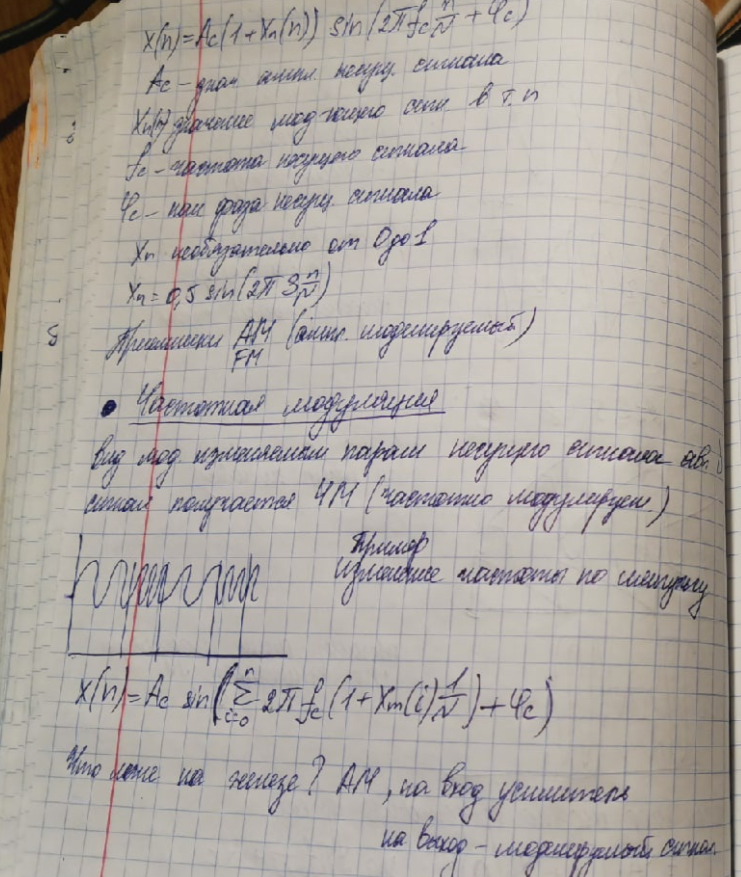 x(n) = Ac(1 + Xm(n)) sin(2π fc n/N + φc)
Ac - знач ампл. несущ. сигнала
Xm(n) значение мод-ющего сигн в т. n
fc - частота несущего сигнала
φc - нач фаза несущ. сигнала
Xm необязательно от 0 до 1
Xm = 0,5 sin(2π 3 n/N)
Приемники АМ (ампл. моделируемый)
FM
• Частотная модуляция
вид мод изменяемым парам несущего сигнала явл
сигнал получается ЧМ (частотно модулируем.)
Пример
изменение частоты по
x(n) = Ac sin(Σ i=0 n 2π fc (1 + Xm(i) 1/N) + φc)
Что на железе? АМ, на вход усилителя
на выход - моделируемый сигнал.